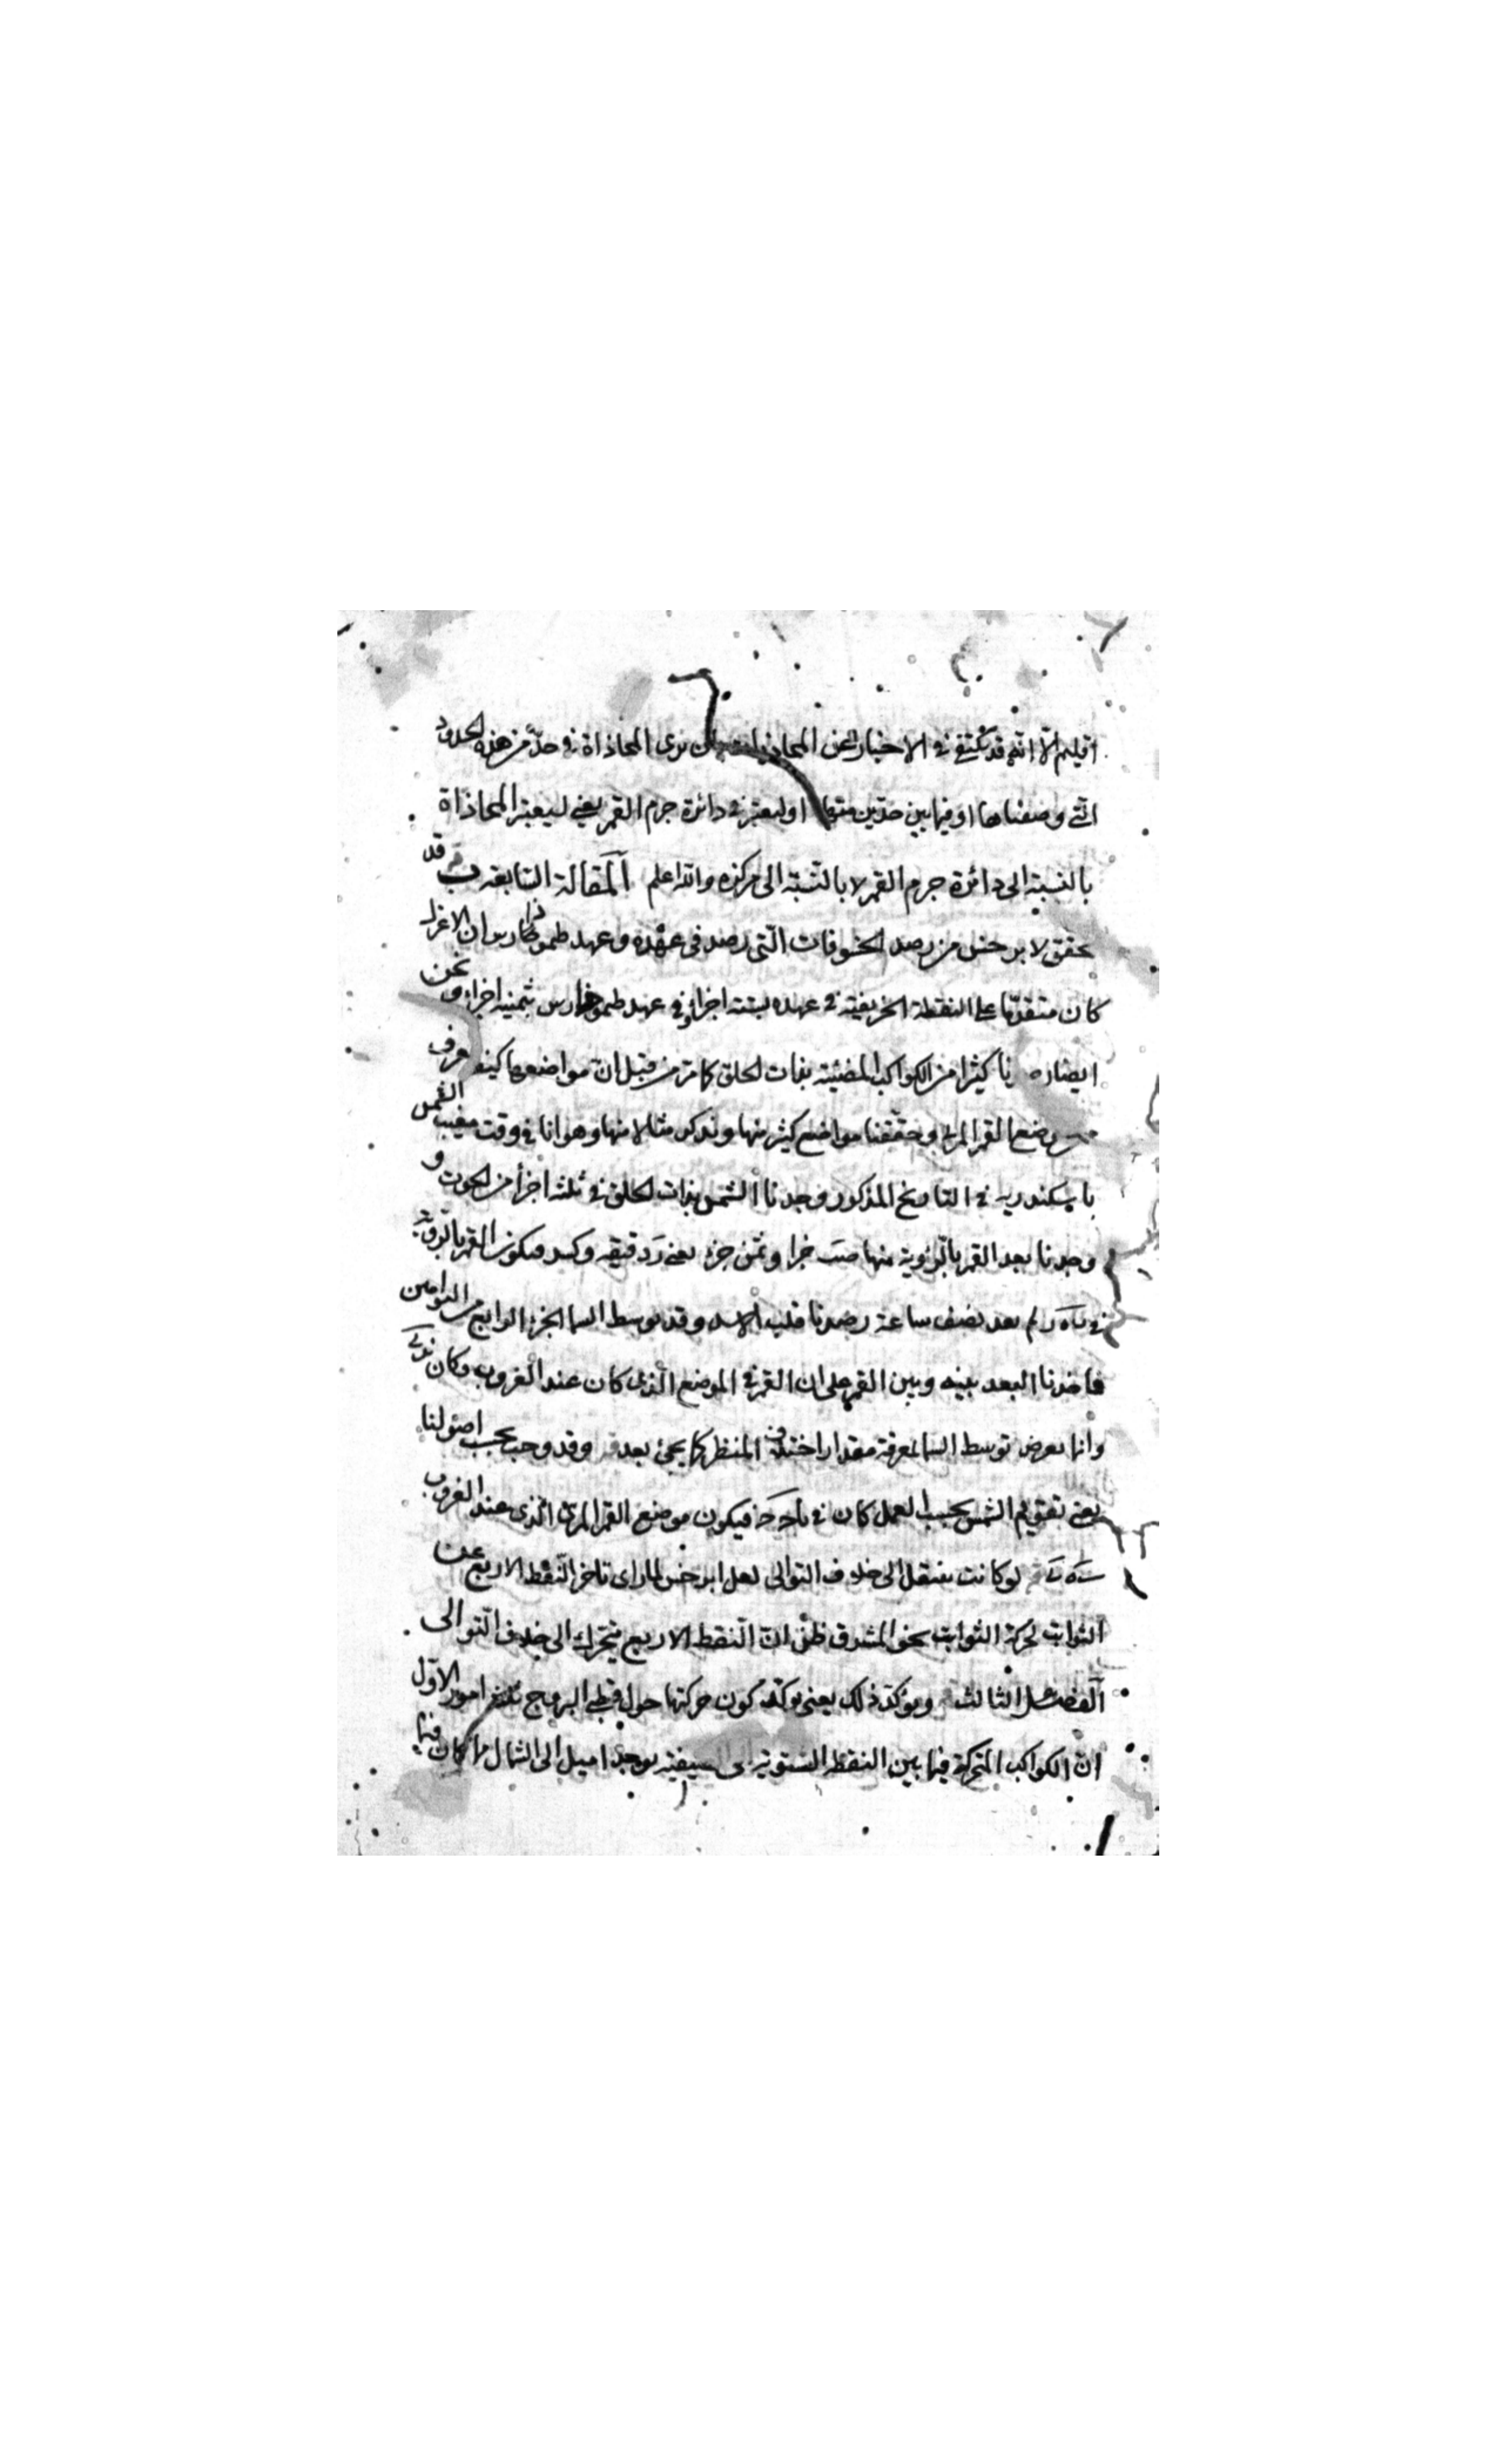 اقليم الا انه قد يكتفى فى الاخبار عن المحاذيات بان نرى المحاذاة فى حد من هذه الحدود
التى وصفناها او فيما بين حدين منها او ليعتبر فى دائرة جرم القمر يعنى ليعتبر المحاذاة
بالنسبة الى دائرة جرم القمر لا بالنسبة الى مركزه والله اعلم المقالة السابعه قد
تحقق لابرخس من رصد الخسوفات التى رصد فى عهده وعهد طموخارس ان الاعزل
كان متقدما على النقطة الخريفية فى عهده بستة اجزاء وفى عهد طموخارس بثمنية اجزاء ونحن
ايضا كثيرا من الكواكب المضيئة بذات الحلق كما مر من قبل ان مواضعها كيف عرف
وضع القمر المرئى وحققنا مواضع كثير منها ونذكر مثالا منها وهو انا فى وقت مغيب الشمس
باسكندريه فى التاريخ المذكور وجدنا الشمس بذات الحلق فى ثلثه اجزأ من الحوت و
وجدنا بعد القمر بالرؤية منها صب جزا وثمن جزء يعنى ز ل دقيقه فيكون القمر بالرؤية
فى بعد نصف ساعة رصدنا قلب الاسد وقد توسط السما الجزء الرابع من التوامين
فاخذنا البعد بينه وبين القمر على ان القمر فى الموضع الذى كان عند الغروب وكان
وانما تعرض توسط السما لمعرفة مقدار اختلاف المنظر كما يجئ بعد وقد وجب بحسب اصولنا
يعنى تقويم الشمس بحسب العمل كان فى فيكون موضع القمر المرئى الذى عند الغروب
لو كانت تنتقل الى خلاف التوالى لعل ابرخس لما راى تاخر النقط الاربع عن
الثوابت لحركة الثوابت نحو المشرق ظن ان النقط الاربع تتحرك الى خلاف التوالى
الفصل الثالث ويؤكد ذلك يعنى يؤكد كون حركتها حول قطبى البروج ثلثة امور الاول
ان الكواكب المتحركة فيما بين النقطه الشتوية الى الصيفية يوجد اميل الى الشمال مما كان فيما